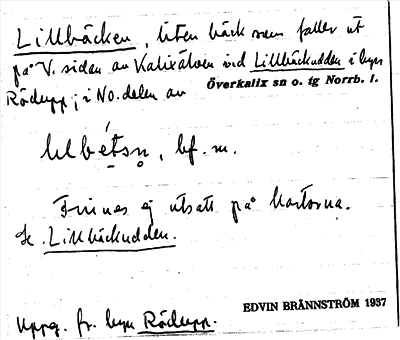 Lillbäcken, liten bäck som faller ut
på V. sidan av Kalixälven vid Lillbäckudden i byn
Rödupp; i NO. delen av Överkalix sn o. tg Norrb. l.
bf. m.
Finnes ej utsatt på kartorna.
Se Lillbäckudden.
Uppg. fr. byn Rödupp.
EDVIN BRÄNNSTRÖM 1937